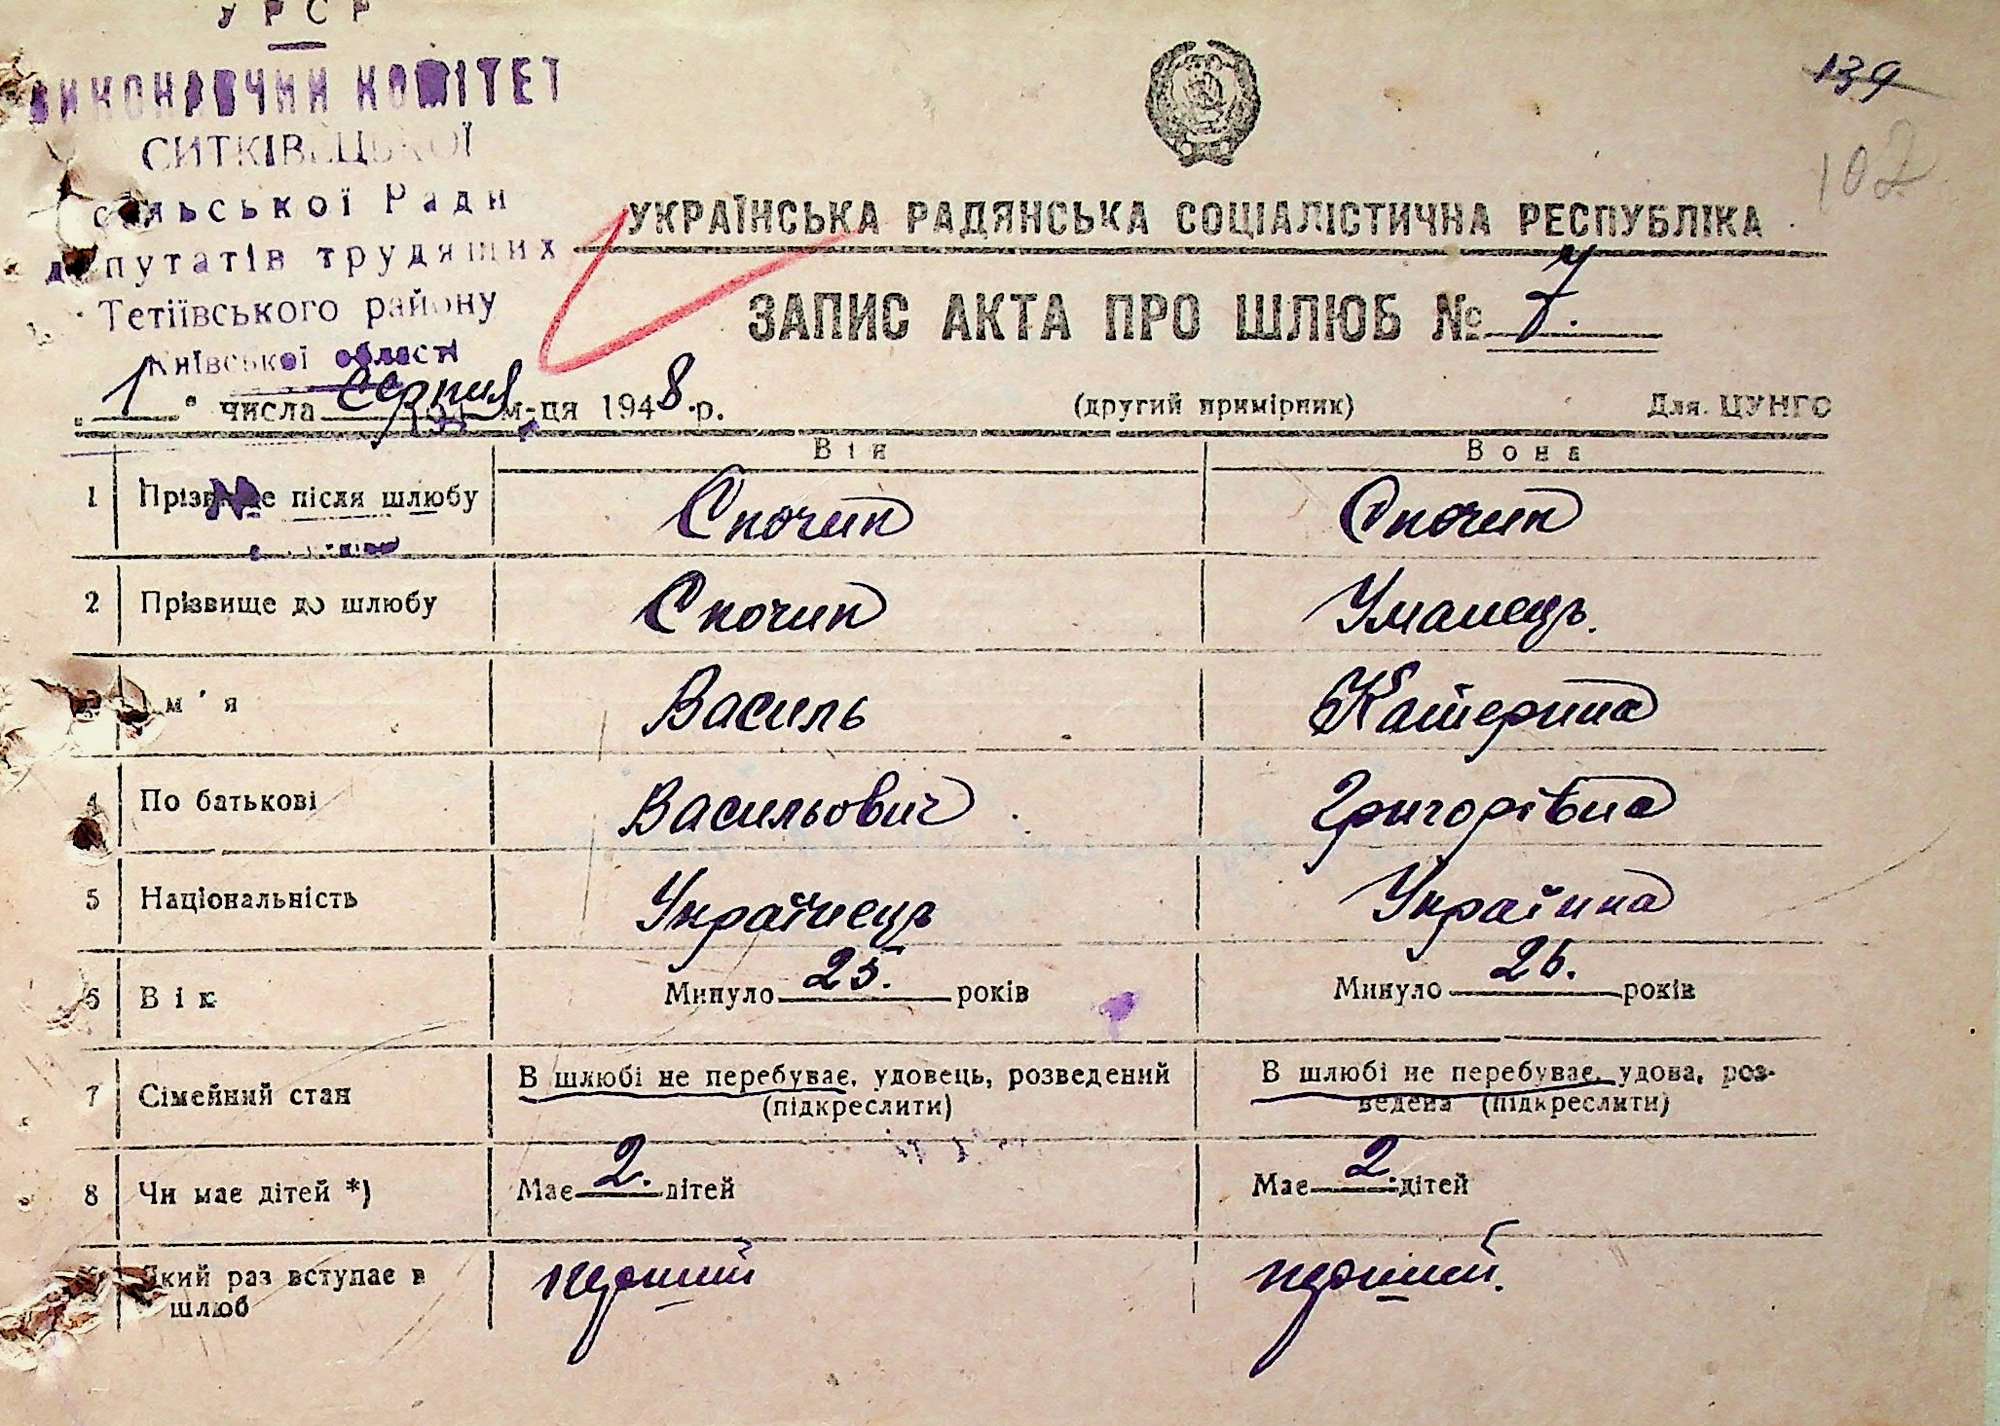 УРСР
ВИКОНАВЧИЙ КОМІТЕТ
СИТКІВЕЦЬКОЇ
сільської Ради
депутатів трудящих
Тетіївського району
Київської області
139
102
УКРАЇНСЬКА РАДЯНСЬКА СОЦІАЛІСТИЧНА РЕСПУБЛІКА
ЗАПИС АКТА ПРО ШЛЮБ № 7.
"1" числа серпня м-ця 1948 р. (другий примірник) Для ЦУНГО
Він Вона
1 Прізвище після шлюбу Спочип Спочип
2 Прізвище до шлюбу Спочип Уманець.
3 Ім'я Василь Катерина
4 По батькові Васильович Григорівна
5 Національність Українець Українка
6 Вік Минуло 25. років Минуло 26. років
7 Сімейний стан В шлюбі не перебуває, удовець, розведений (підкреслити) В шлюбі не перебуває, удова, роз-
ведена (підкреслити)
8 Чи має дітей *) Має 2. дітей Має 2. дітей
9 Який раз вступає в шлюб перший перший.